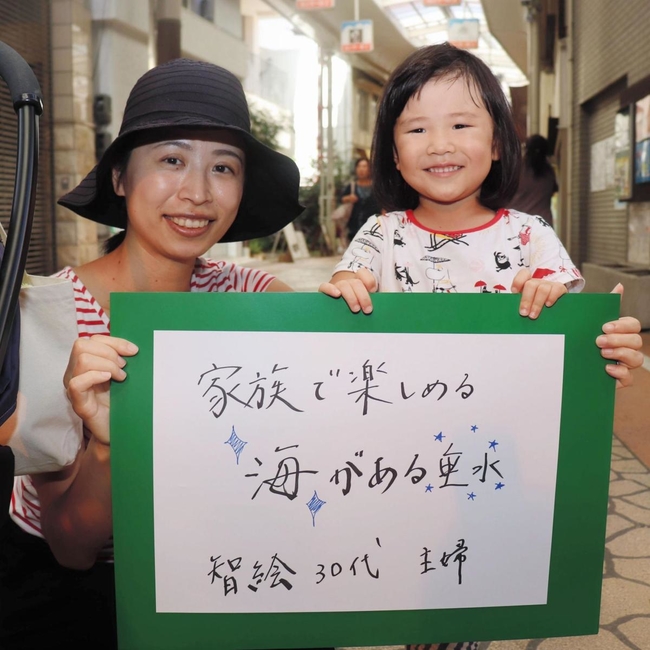 家族で楽しめる
海がある垂水
智絵 30代 主婦